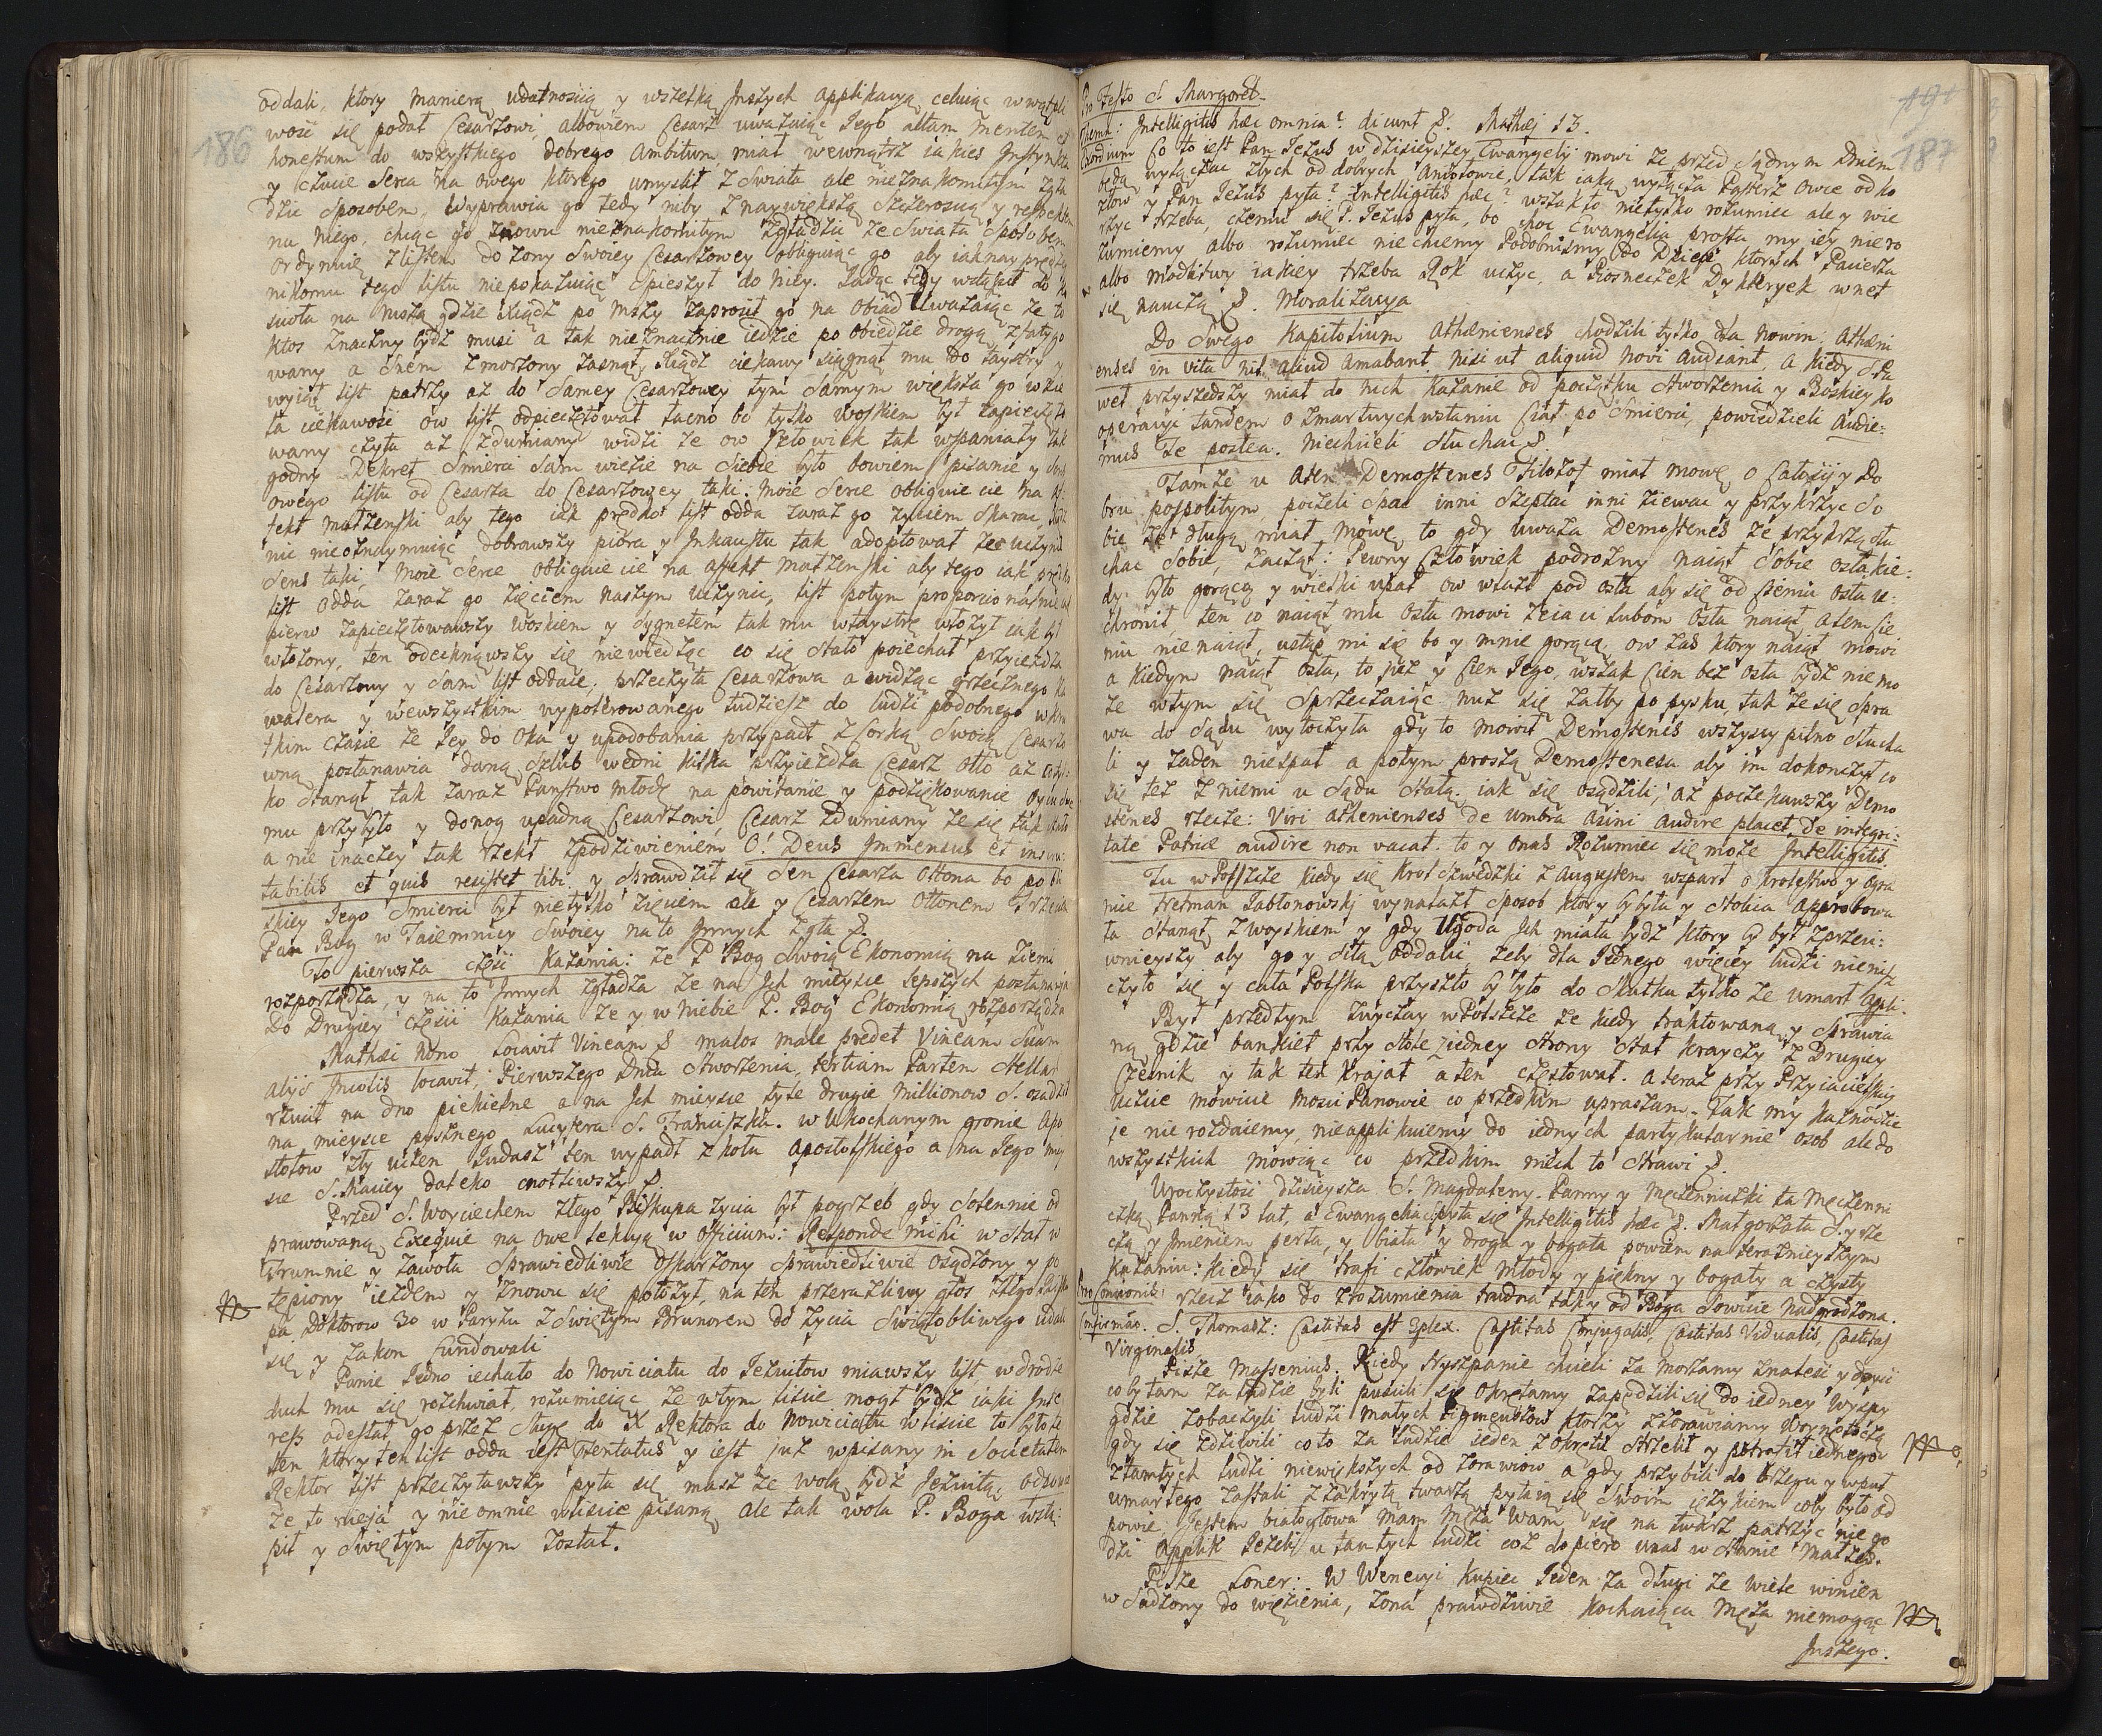 186
oddali, ktory manierą udatnoscią y wszelką Jnszych applikacyą celuiąc w wątpli
wość się podał Cesarzowi, albowiem Cesarz uwazaiąc Jego altam mentem et
honestum do wszystkiego dobrego ambitum, miał wewnątrz iakies Jnstynkta
y czucie Serca na owego ktorego umyslił z Swiata ale nieznakomitym zgła
dzic Sposobem. Wyprawia go tedy niby z naywiększą szczerością y respektem
na niego, chcąc go znowu nieznakomitym zgładzic ze Swiata Sposobem
ordynuie z listem do zony Swoiey Cesarzowey obliguiąc go aby iaknayprędzey
nikomu tego listu niepokazuiąc Spieszył do niey. Jadąc tedy wstąpił do Ko
scioła na mszą gdzie Xiądz po mszy zaprosił go na obiad Uwazaiąc ze to
ktos znaczny bydz musi a tak nieznacznie iedzie po obiedzie drogą zfatygo
wany a Snem zmorzony zasnął, Xiądz ciekawy siągnął mu do taystry y
wyiął list patrzy az do Samey Cesarzowey tym Samym większa go wzie
ła ciekawość ow list odpieczętował łacno bo tylko woskiem był zapieczęto
wany czyta az zdumiany widzi ze ow Człowiek tak wspaniały tak
godny Dekret Smierci Sam wiezie na Siebie było bowiem pisanie y Sens
owego listu od Cesarza do Cesarzowey taki. Moie Serce obliguie cie na af:
fekt małzenski aby tego iak prędko list odda zaraz go zyciem Skarac,
nic nieoznaymuiąc dobrawszy piora y Jnkaustu tak adoptował ze uczynił
Sens taki, Moie Serce obliguie cie na affekt małzenski aby tego iak prędko
list odda zaraz go zięciem naszym uczynic, list potym proporcionalnie iak
pierw zapieczętowawszy woskiem y Sygnetem tak mu wtaystrę włozył iak był
włozony, ten ocknąwszy się niewiedząc co się Stało poiechał przyiezdza
do Cesarzowy y Sam list oddaie, przeczyta Cesarzowa a widząc grzecznego Ka
walera y wewszystkim wypolerowanego tudziesz do ludzi podobnego w kro
tkim czasie ze Jey do Oka y upodobania przypadł z Corką Swoią Cesarzo
wną postanawia daną Szlub wedni kilka przyiezdza Cesarz Otto az tyl:
ko Stanął tak zaraz Panstwo młode na powitanie y podziękowanie
mu przybyło y donog upadną Cesarzowi, Cesarz zdumiany ze się tak stało
a nie inaczey tak rzekł zpodziwieniem O! Deus Jmmensus et inscru:
tabilis et quis resistet tibi. y Sprawdził się Sen Cesarza Ottona bo po
skiey Jego Smierci był nietylko zięciem ale y Cesarzem Ottonem Trzecim
Pan Bog w Taiemnicy Swoiey na to Jnnych zgła &.
To pierwsza częsci Kazania: ze P Bog Swoią Ekonomią na Ziemi
rozporządza, y na to Jnnych zgładza ze na Jch mieysce lepszych postanawia
Do Drugiey częsci Kazania ze y w niebie P. Bog Ekonomią rozporządza
Mathæi Nono Locavit Vineam & malos male perdet Vineam Suam
alijs Jncolis locavit, Pierwszego Dnia Stworzenia, tertiam Partem Stellar
rzucił na dno piekielne a na Jch mieysce tyle drugie millionow S. osadził
na mieysce pysznego Lucypera S. Franciszka. w Ukochanym gronie Apo
stołow zły uczen Judasz ten wypadł z koła Apostolskiego a na Jego miey
sce S. Maciey daleko cnotliwszy &.
Przed S. Woyciechem złego Biskupa zycia był pogrzeb gdy Solennie od
prawowaną Exequie na owe lekcyą w officium: Responde mihi wstał w
trumnie y zawoła Sprawiedliwie oskarzony sprawiedliwie osądzony y po
tępiony iestem y znowu się połozył, na ten przerazliwy głos złego Bisku
pa Doktorow 30 w Paryzu z Swiętym Brunonem do zycia Swiątobliwego udali
się y zakon fundowali
Panie Jedno iechało do Nowiciatu do Jezuitow miawszy list wdrodze
duch mu się rozchwiał, rozumieiąc ze wtym liscie mogł bydz iaki Jnte
ress odesłał go przez Sługę do X Rektora do Nowiciatu wliscie to było ze
ten ktory ten list odda iest Tentatus y iest juz wpisany in Societatem
Rektor list przeczytawszy pyta się masz ze wolą bydz Jezuitą, odpowie
ze to nieja y nie omnie wliscie pisaną ale tak wola P. Boga wstą:
pił y Swiętym potym został.

191
187
Pro Festo S. Margoret.
Thema: Jntelligitis hæc omnia? dicunt &. Mathæj 13.
Exordium Co to iest Pan Jezus w dzisieyszey Ewangelij mowi ze przed Sądnym Dniem
będą wyłączac złych od dobrych Aniołowie, tak iaką wyłącza Pasterz owce od ko
złow y Pan Jezus pyta? Jntelligitis hæc? wszak to nietylko rozumiec ale y wie
rzyc trzeba, czemu się P. Jezus pyta, bo choc Ewangelia prosta my iey niero
zumiemy albo rozumiec niechcemy Podobnismy do Dzieci ktorych Pacierza
albo modlitwy iakiey trzeba Rok uczyc, a Piosneczek Dykteryek wnet
się nauczą &. Moralizacya
Do Swego Kapitolium Athænienses chodzili tylko dla Nowin. Athæni
enses in vita nil aliud amabant nisi ut aliquid novi audiant, a kiedy S Pa
weł przyszedszy miał do nich Kazanie od początku Stworzenia y Boskiey ko
operacyi tandem o zmartwychwstaniu Ciał po Smierci, powiedzieli Audie:
mus Te postea. niechcieli Słuchac &
Tamze u Aten Demostenes Filozof miał mowę o Całosci y Do
bru pospolitym poczeli Spac inni Szeptac inni ziewac y przykrzyc So
bie ze długą miał Mowę, to gdy uwaza Demostenes ze przykrzą słu
chac Sobie, zaczął: Pewny Człowiek podrozny naiął Sobie osła, kie:
dy było gorąco y wielki upał ow wlazł pod osła aby się od Cieniu osła u:
chronił, ten co naiął mu osła mowi zeia ci lubom osła naiął Alem Cie
niu nie naiął, ustąp mi się bo y mnie gorąco, ow zas ktory naiął mowi
a Kiedym naiął osła, to juz y Cien Jego, wszak Cien bez osła bydz niemo
ze wtym się Sprzeczaiąc nuz się załby po pysku, tak ze się Spra
wa do Sądu wytoczyła gdy to mowił Demostenes wszyscy pilno słucha
li y zaden niespał a potym proszą Demostenesa aby im dokonczył co
się tez z niemi u Sądu Stało. iak się osądzili, az poczekawszy Demo
stenes rzecze: Viri Athenienses de umbra asini audire placet, de integri:
tate Patriæ audire non vacat. to y onas Rozumiec się moze Jntelligitis
Tu wPolszcze kiedy się Krol Szwedzki z Augustem wsparł o Krolestwo y ogra
nie Hetman Jabłonowski wynalazł Sposob ktory byłby y Stolica Approbowa
ła Stanął z woyskiem y gdy Ugoda Jch miała bydz ktory by był zprzeci:
wnieyszy aby go y siłą oddalic, zeby dla Jednego więcey ludzi nieni
czyło się y cała Polska przyszło by było do Skutku tylko ze umarł Appli.
Był przedtym zwyczay wPolszcze ze kiedy traktowaną y Sprawia
ną gdzie bankiet przy stole zjedney Strony Stał Krayczy z Drugiey
Czesnik y tak ten Krajał aten częstował. a teraz przy Przyiacielskiej
uczcie mowicie Mosci Panowie co przedkim upraszam. Tak my kaznodzie
je nie rozdaiemy, nieapplikuiemy do iednych partykularnie osob ale do
wszystkich mowiąc co przedkim niech to Strawi &.
Uroczystosc dzisieysza S. Magdaleny. Panny y Męczenniczki ta Męczenni
czką Panną 13 lat, a Ewangelia pyta się Jntelligitis hæc &. Małgorzata S. ysze
czą y Jmieniem perła, y biała y droga y bogata powiem na teraznieyszym
Kazaniu: kiedy się trafi człowiek młody y piękny y bogaty a czysty
Pro Concione: rzecz iako do zrozumienia trudna taky od Boga Sowicie nadgrodzona.
Confirmão. S. Thomasz: Castitas est 3plex. Castitas Conjugalis, Castitas Vidualis, Castitas
Virginalis
Pisze Massenius. Kiedy Hyszpanie chcieli za morzamy znalesc y doysc
coby tam za ludzie byli puscili się okrętamy zapędzili się do iedney Wyspy
gdzie zobaczyli ludzi małych Pigmeuszow ktorzy z zorawiamy woynę toczą
gdy się zdziwili coto za ludzie ieden z okrętu Strzelił y potrafił iednego
ztamtych ludzi niewiększych od zorawiow a gdy przybili do brzegu y wpuł
umarłego zastali z zakrytą twarzą pytaią się Swoim językiem coby było od
powie Jestem białogłowa Mam Męza Wam się na twarz patrzyc nie go
dzi Applik Jezeli u tamtych ludzi coz dopiero unas w stanie Małzen.
Pisze Loner: W Wenecyi kupiec Jeden za długi ze wiele winien
wsadzony do więzienia, zona prawdziwie Kochaiąca Męza niemogąc
Jnszego.